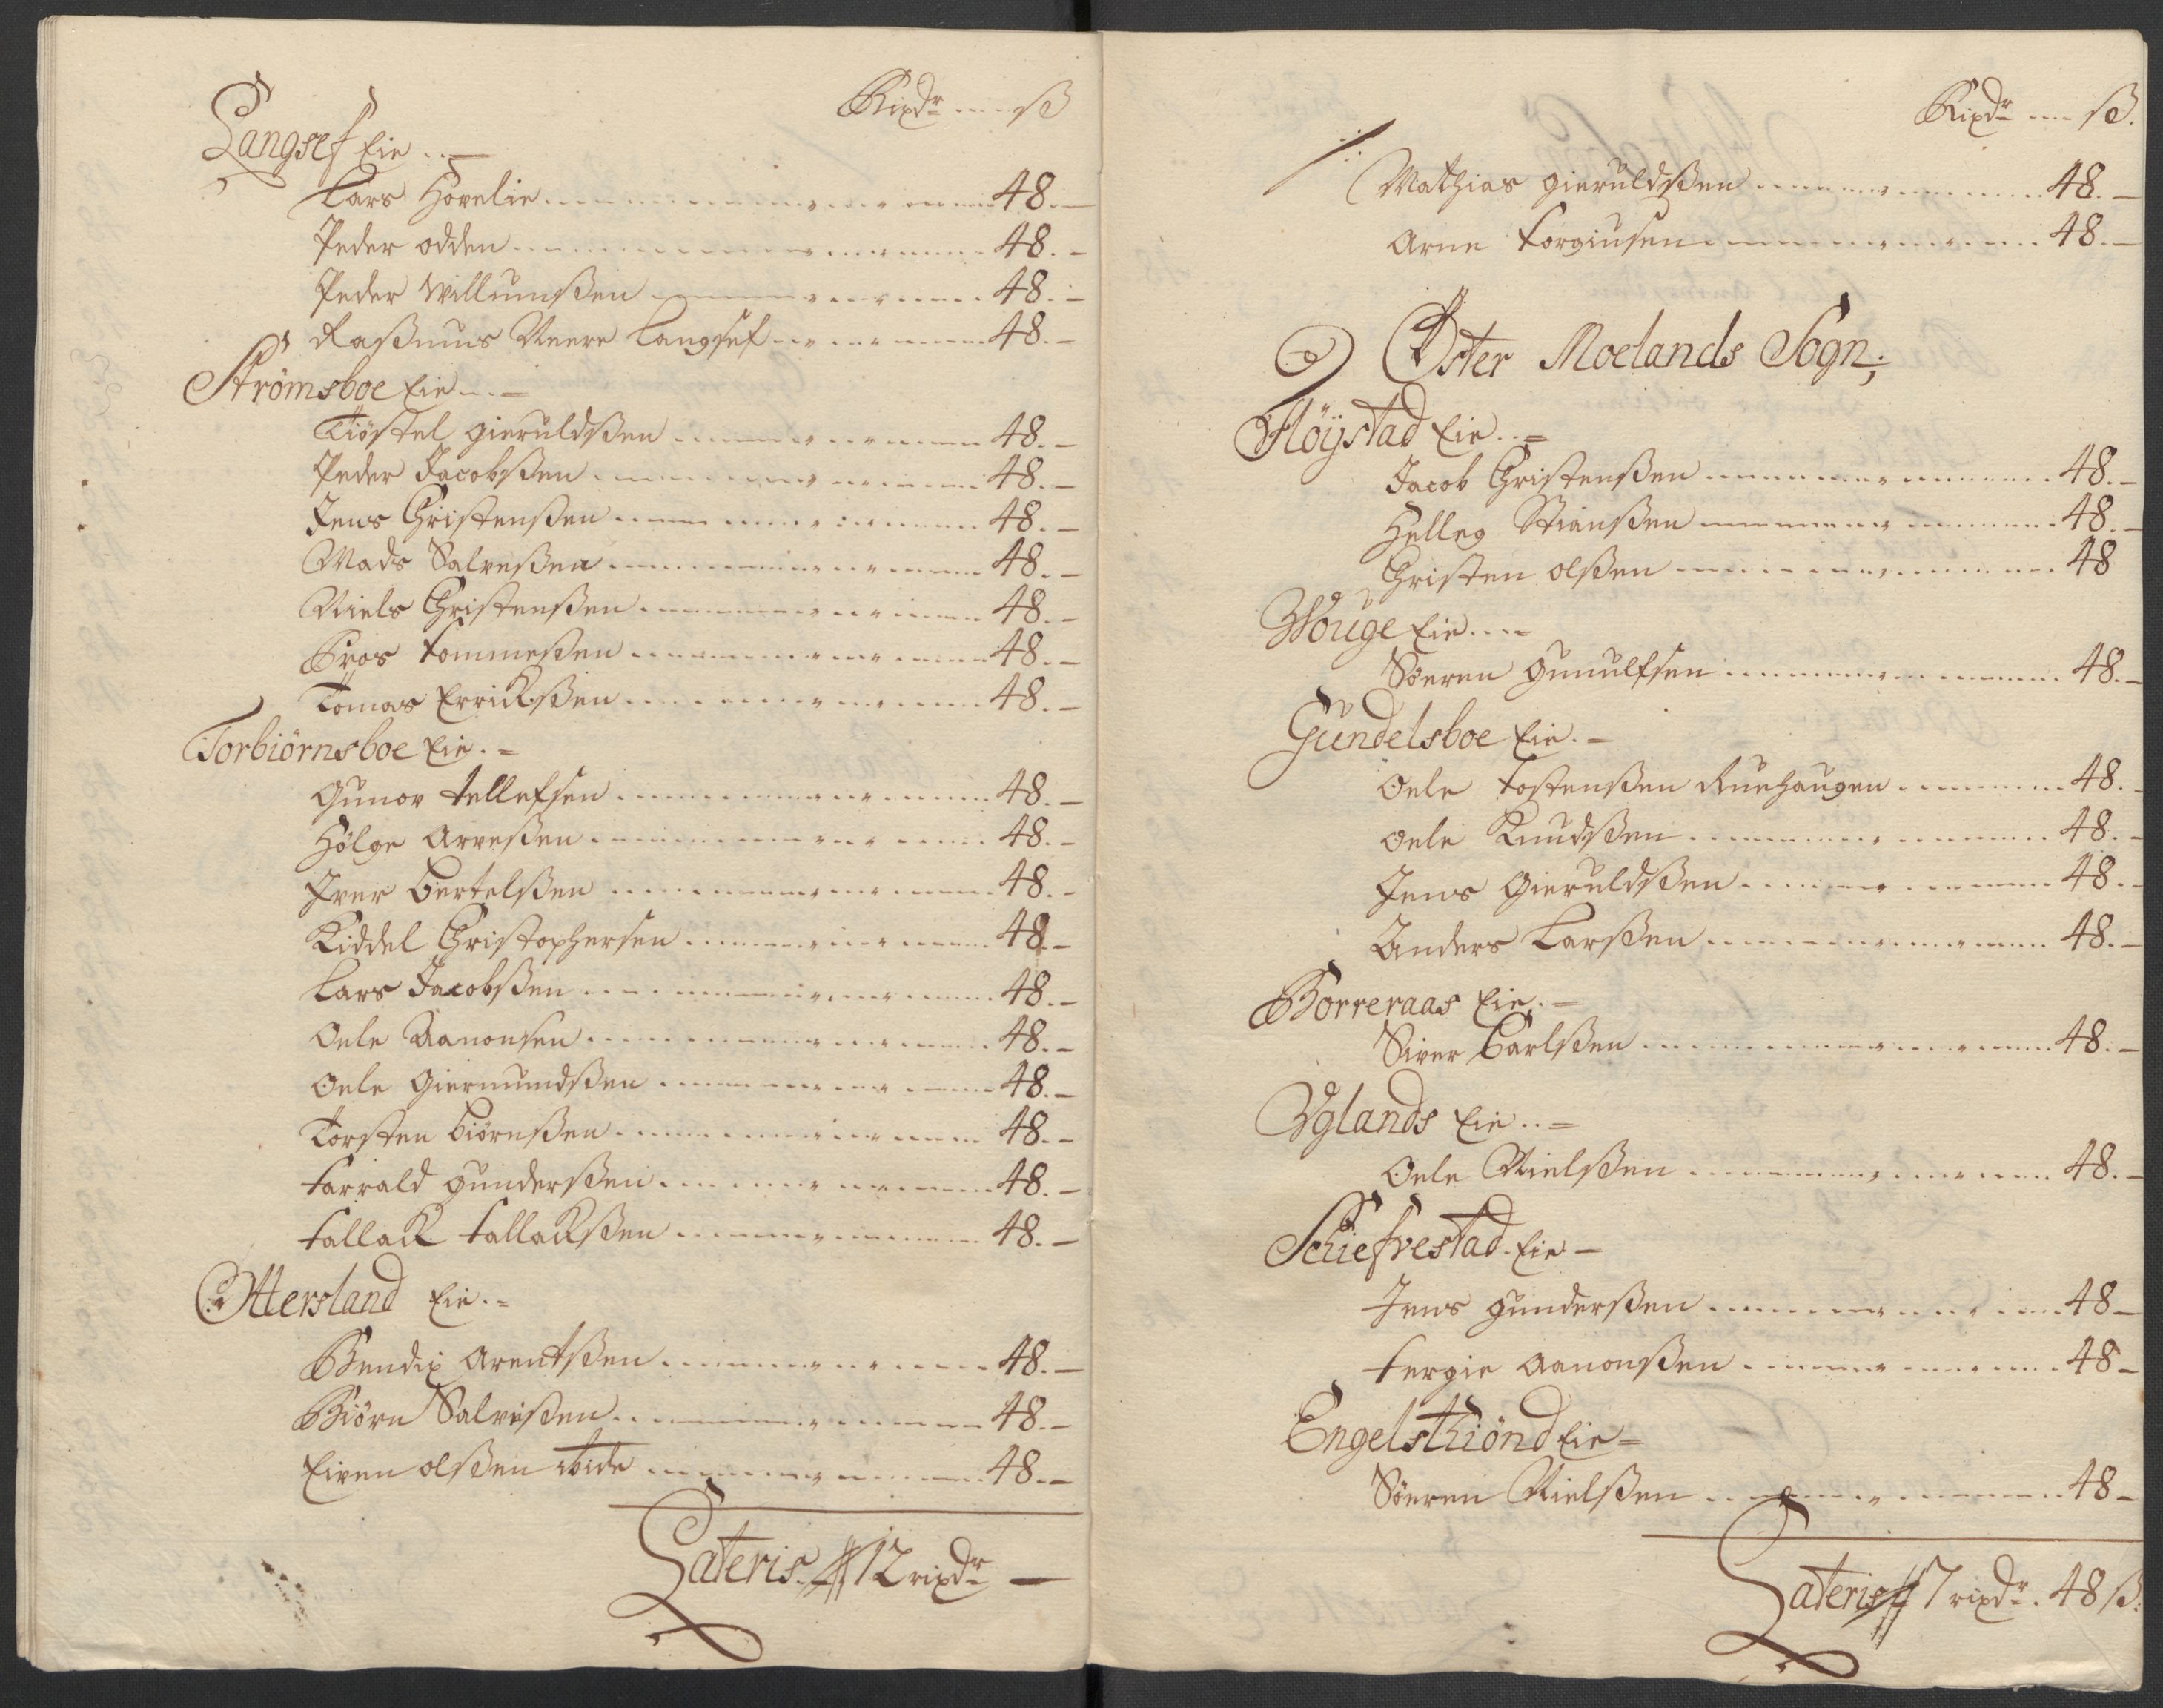 Rixdr ---- ß
Langsef Eie
Lars Hovelie 48. —
Peder odden 48. —
Peder Willumßen 48. —
Raßmus Neere Langsef 48. —
Strømsboe Eie
Tiøstel Gieruldßen 48. —
Peder Jacobßen 48. —
Jens Christenßen 48. —
Mads Salveßen 48. —
Niels Christenßen 48. —
Gros Tommeßen 48. —
Tomas Errickßen 48. —
Torbiørnsboe Eie. =
Gunov Tellefsen 48. —
Hølge Arveßen 48. —
Iver Bertelßen 48. —
Kiddel Christophersen 48 —
Lars Jacobßen 48. —
Oele Aanonsen 48. —
Oele Giermundßen 48. —
Torsten Biørnßen 48. —
Tarrald Gunderßen 48. —
Tallack Tallackßen 48. —
Ottersland Eie. =
Bendix Arentßen 48. —
Biørn Salveßen 48. —
Eiven olßen 48. —
Lateris 12 rixdr —
Rixdr ---- ß.
Mathias Gieruldßen 48. —
Arne Torgiusen 48. —
Øster Moelands Sogn;
Fløÿstad Eie. =
Jacob Christenßen 48. —
Helleg Stianßen 48. —
Christen olßen 48
Wouge Eie
Søeren Gunulfsen 48. —
Gundelsboe Eie. —
Oele Tostenßen Ruehaugen 48. —
Oele Knudßen 48. —
Jens Gieruldßen 48. —
Anders Larßen 48. —
Borreraas Eie. —
Siver Carlßen 48. —
Vglands Eie. =
Oele Nielßen 48. —
Schiefvestad Eie —
Jens Gunderßen 48 —
Tergie Aanonßen 48 —
Engelsthiønd Eie =
Søeren Nielßen 48 —
Lateris 7 rixdr. 48 ß.